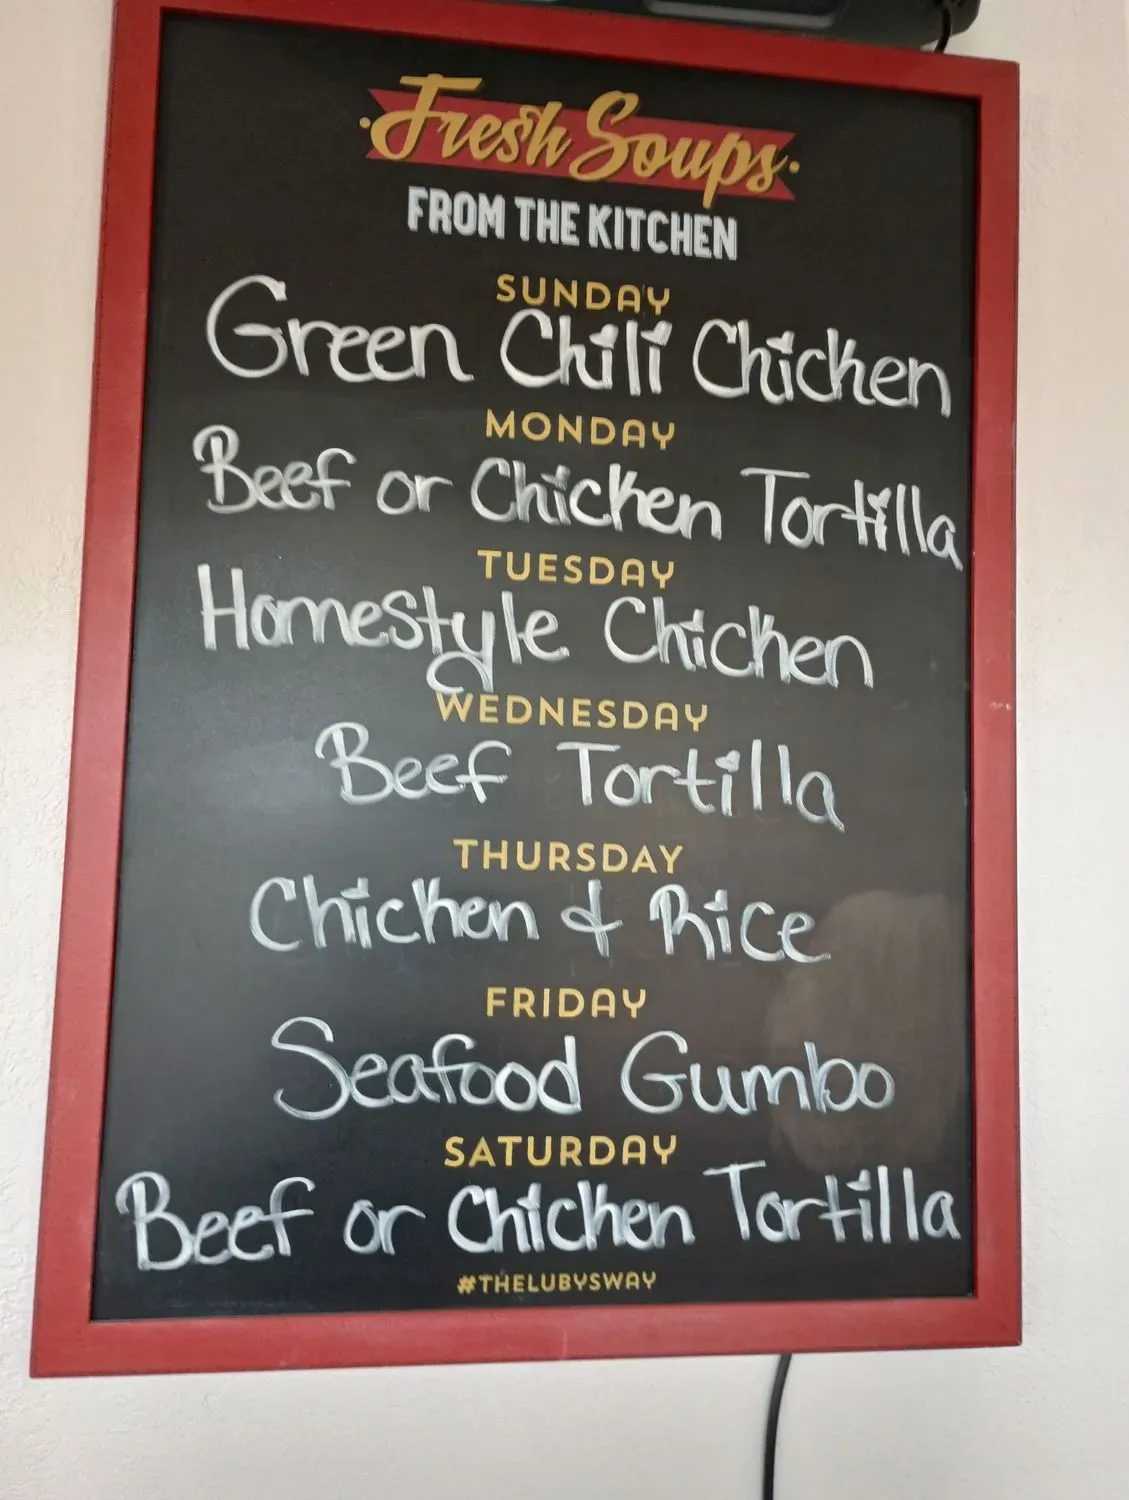 Fresh Soups
FROM THE KITCHEN
SUNDAY
Green Chili Chicken
MONDAY
Beef or Chicken Tortilla
TUESDAY
Homestyle Chicken
WEDNESDAY
Beef Tortilla
THURSDAY
Chicken & Rice
FRIDAY
Seafood Gumbo
SATURDAY
Beef or Chicken Tortilla
#THELUBYSWAY